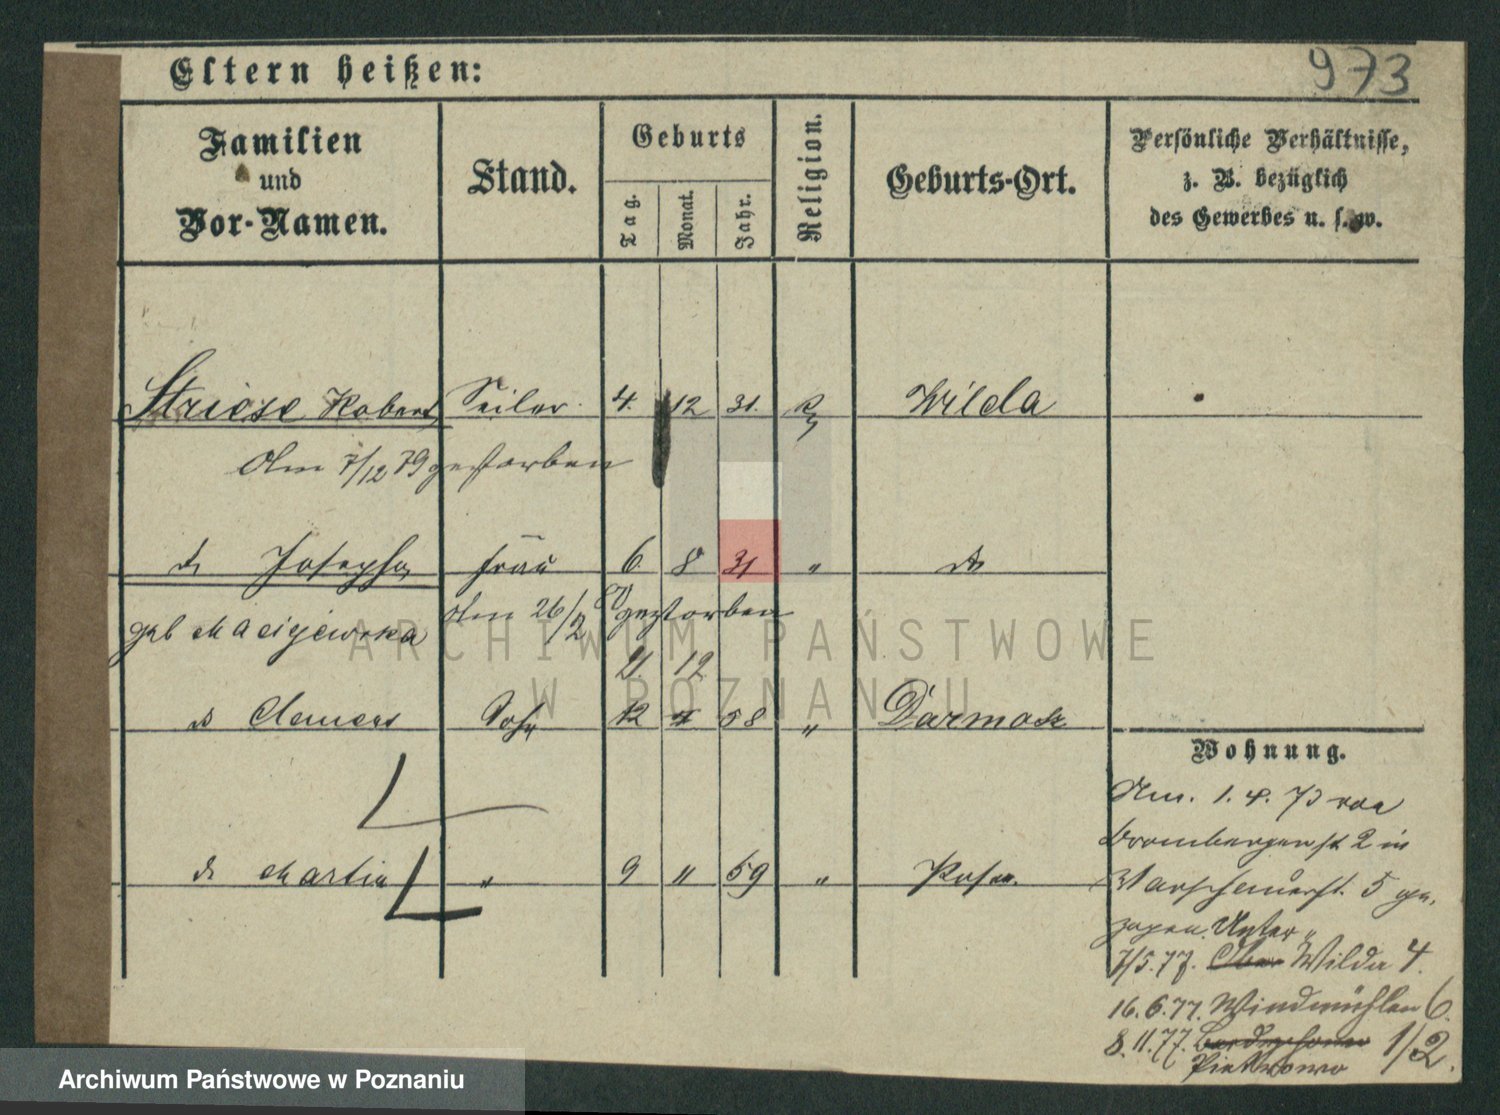 973
Eltern heißen:
Familien und Vor-Namen.
Stand.
Geburts
Tag.
Monat.
Jahr.
Religion.
Geburts-Ort.
Persönliche Verhältnisse,
z. B. bezüglich
des Gewerbes u. s. w.
Striese Robert Seiler 4. 12 31. Wilda
Am 7/12 79 gestorben
do Josepha Frau 6 8 31 " do
geb Maciejewska
Am 26/2 gestorben
21. 12
do Clemens Sohn 12 58 "
do Martin " 9 " 59 " Posen.
Wohnung.
Am. 1. 4. 73 von
Brombergerst 2 in
Warschauerst. 5 ge-
zogen. Unter "
7/5. 77. Ober Wilda 4.
16. 6. 77. Windmühlen 6.
8. 11. 77. 1/2.
Pietrowo
ARCHIWUM PAŃSTWOWE
W POZNANIU
Archiwum Państwowe w Poznaniu